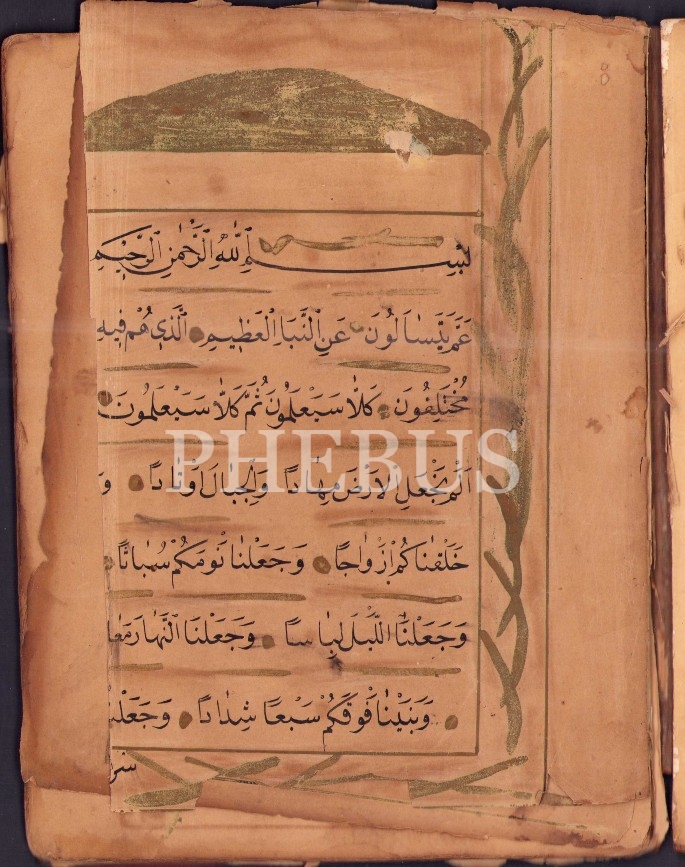 بِسْمِ اللّٰهِ الرَّحْمٰنِ الرَّحِيْمِ
عَمَّ يَتَسَاۤءَلُوْنَ عَنِ النَّبَاِ الْعَظِيْمِ الَّذِيْ هُمْ فِيْهِ
مُخْتَلِفُوْنَ كَلَّا سَيَعْلَمُوْنَ ثُمَّ كَلَّا سَيَعْلَمُوْنَ
اَلَمْ نَجْعَلِ الْاَرْضَ مِهَادًا وَالْجِبَالَ اَوْتَادًا وَ
خَلَقْنَاكُمْ اَزْوَاجًا وَجَعَلْنَا نَوْمَكُمْ سُبَاتًا
وَجَعَلْنَا اللَّيْلَ لِبَاسًا وَجَعَلْنَا النَّهَارَ
وَبَنَيْنَا فَوْقَكُمْ سَبْعًا شِدَادًا
PHEBUS